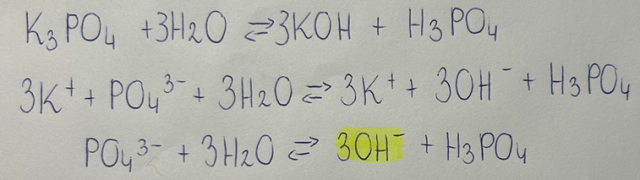 K₃PO₄ + 3H₂O ⇌ 3KOH + H₃PO₄
3K⁺ + PO₄³⁻ + 3H₂O ⇌ 3K⁺ + 3OH⁻ + H₃PO₄
PO₄³⁻ + 3H₂O ⇌ 3OH⁻ + H₃PO₄